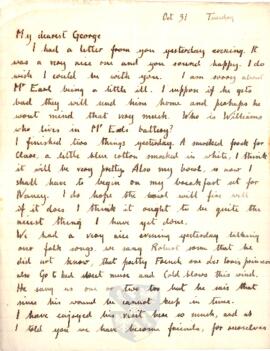 Oct 31 Tuesday
My dearest George
I had a letter from you yesterday evening. It
was a very nice one and you sound happy. I do
wish I could be with you. I am sorry about
Mr Earl being a little ill. I suppose if he gets
bad they will send him home and perhaps he
wont mind that very much. Who is Williams
who lives in Mr Earls battery?
I finished two things yesterday. A smocked frock for
Clare, a little blue cotton smocked in white, I think
it will be very pretty. Also my bowl, so now I
shall have to begin on my breakfast set for
Nancy. I do hope the bowl will fire well
if it does I think it ought to be quite the
nicest thing I have yet done.
We had a very nice evening yesterday
our folk songs, we sang Robert some that he
did not know, that pretty French one
also Go to bed sweet muse and Cold blows this wind.
He sang us one or two too but he says that
since his wound he cannot keep in time.
I have enjoyed his visit here so much, and as
I told you we have become friends, for ourselves